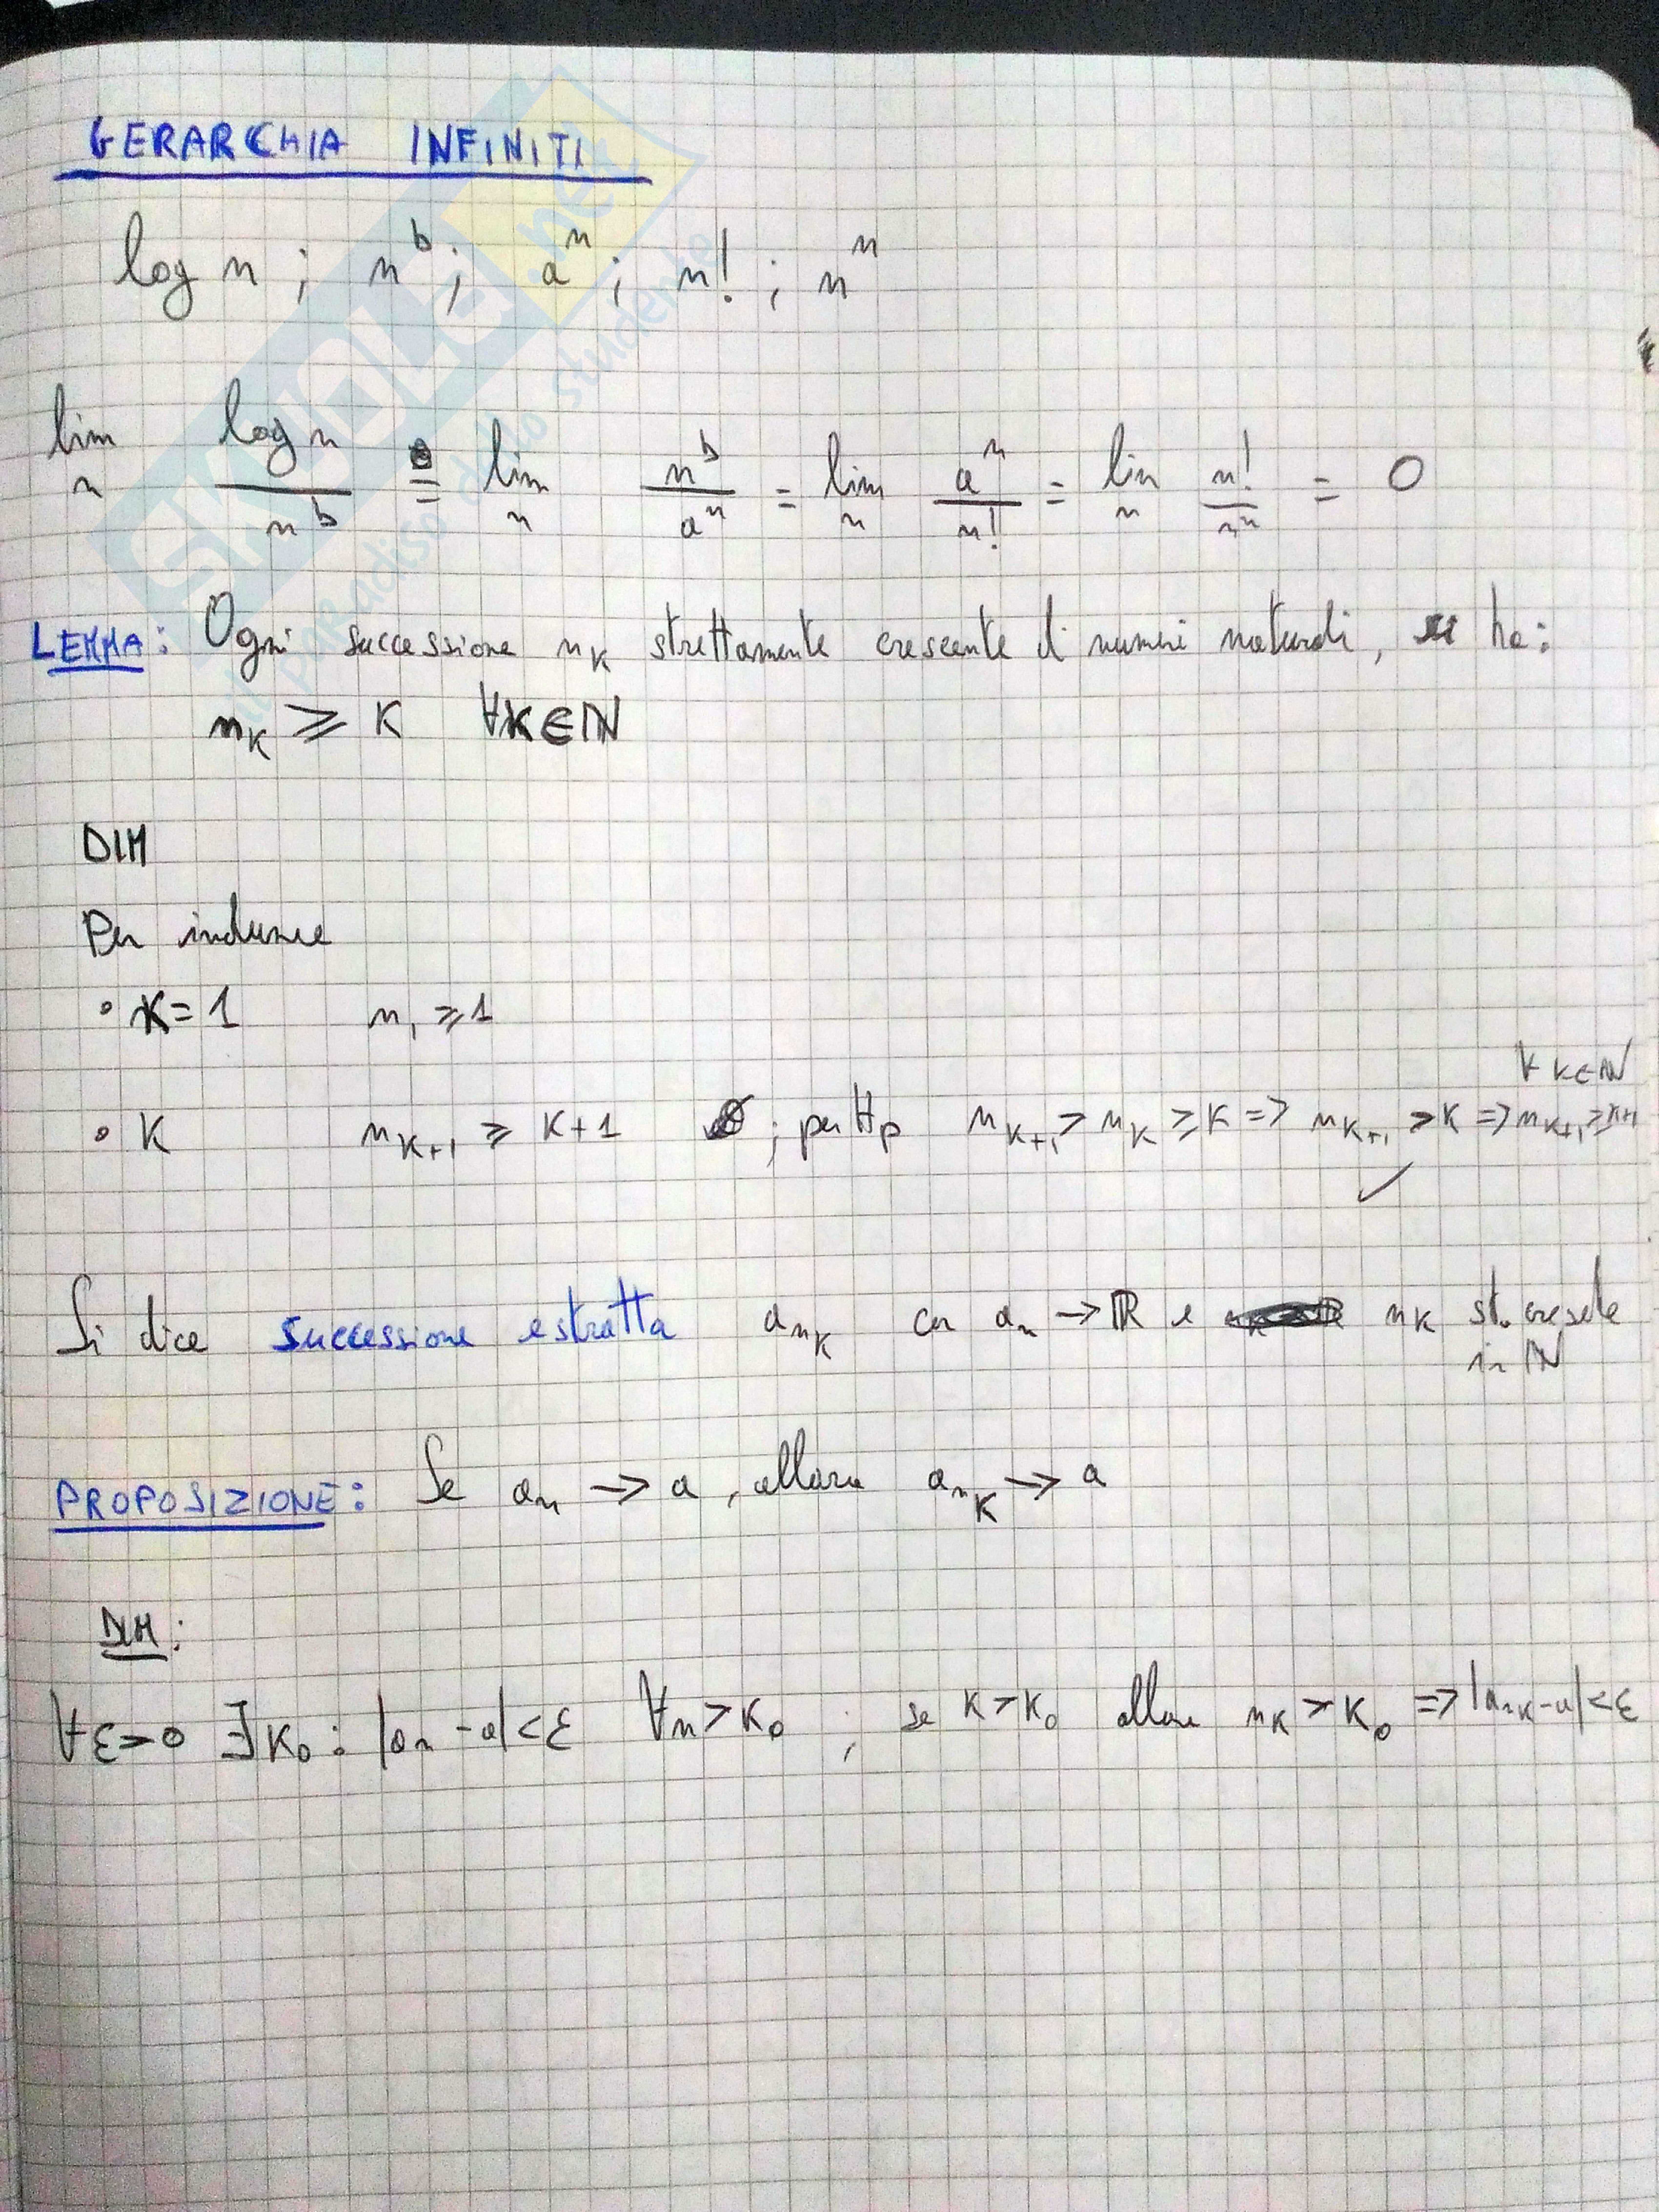 GERARCHIA INFINITI
log n ; n^b ; a^n ; n! ; n^n
lim_n log n / n^b = lim_n n^b / a^n = lim_n a^n / n! = lim_n n! / n^n = 0
LEMMA: Ogni successione n_K strettamente crescente di numeri naturali, si ha:
n_K ⩾ K ∀K∈ℕ
DIM
Per induzione
• K=1 n_1 ⩾ 1
• K n_{K+1} ⩾ K+1 ; per Hp n_{K+1} > n_K ⩾ K => n_{K+1} > K => n_{K+1} ⩾ K+1 ∀ K∈ℕ
✓
Si dice successione estratta a_{n_K} con a_n → ℝ e n_K st. crescente
in ℕ
PROPOSIZIONE: Se a_n → a, allora a_{n_K} → a
DIM:
∀ε>0 ∃K_0 : |a_n - a|<ε ∀n>K_0 ; se K>K_0 allora n_K > K_0 => |a_{n_K} - a|<ε
SKUOLA.net
il paradiso dello studente